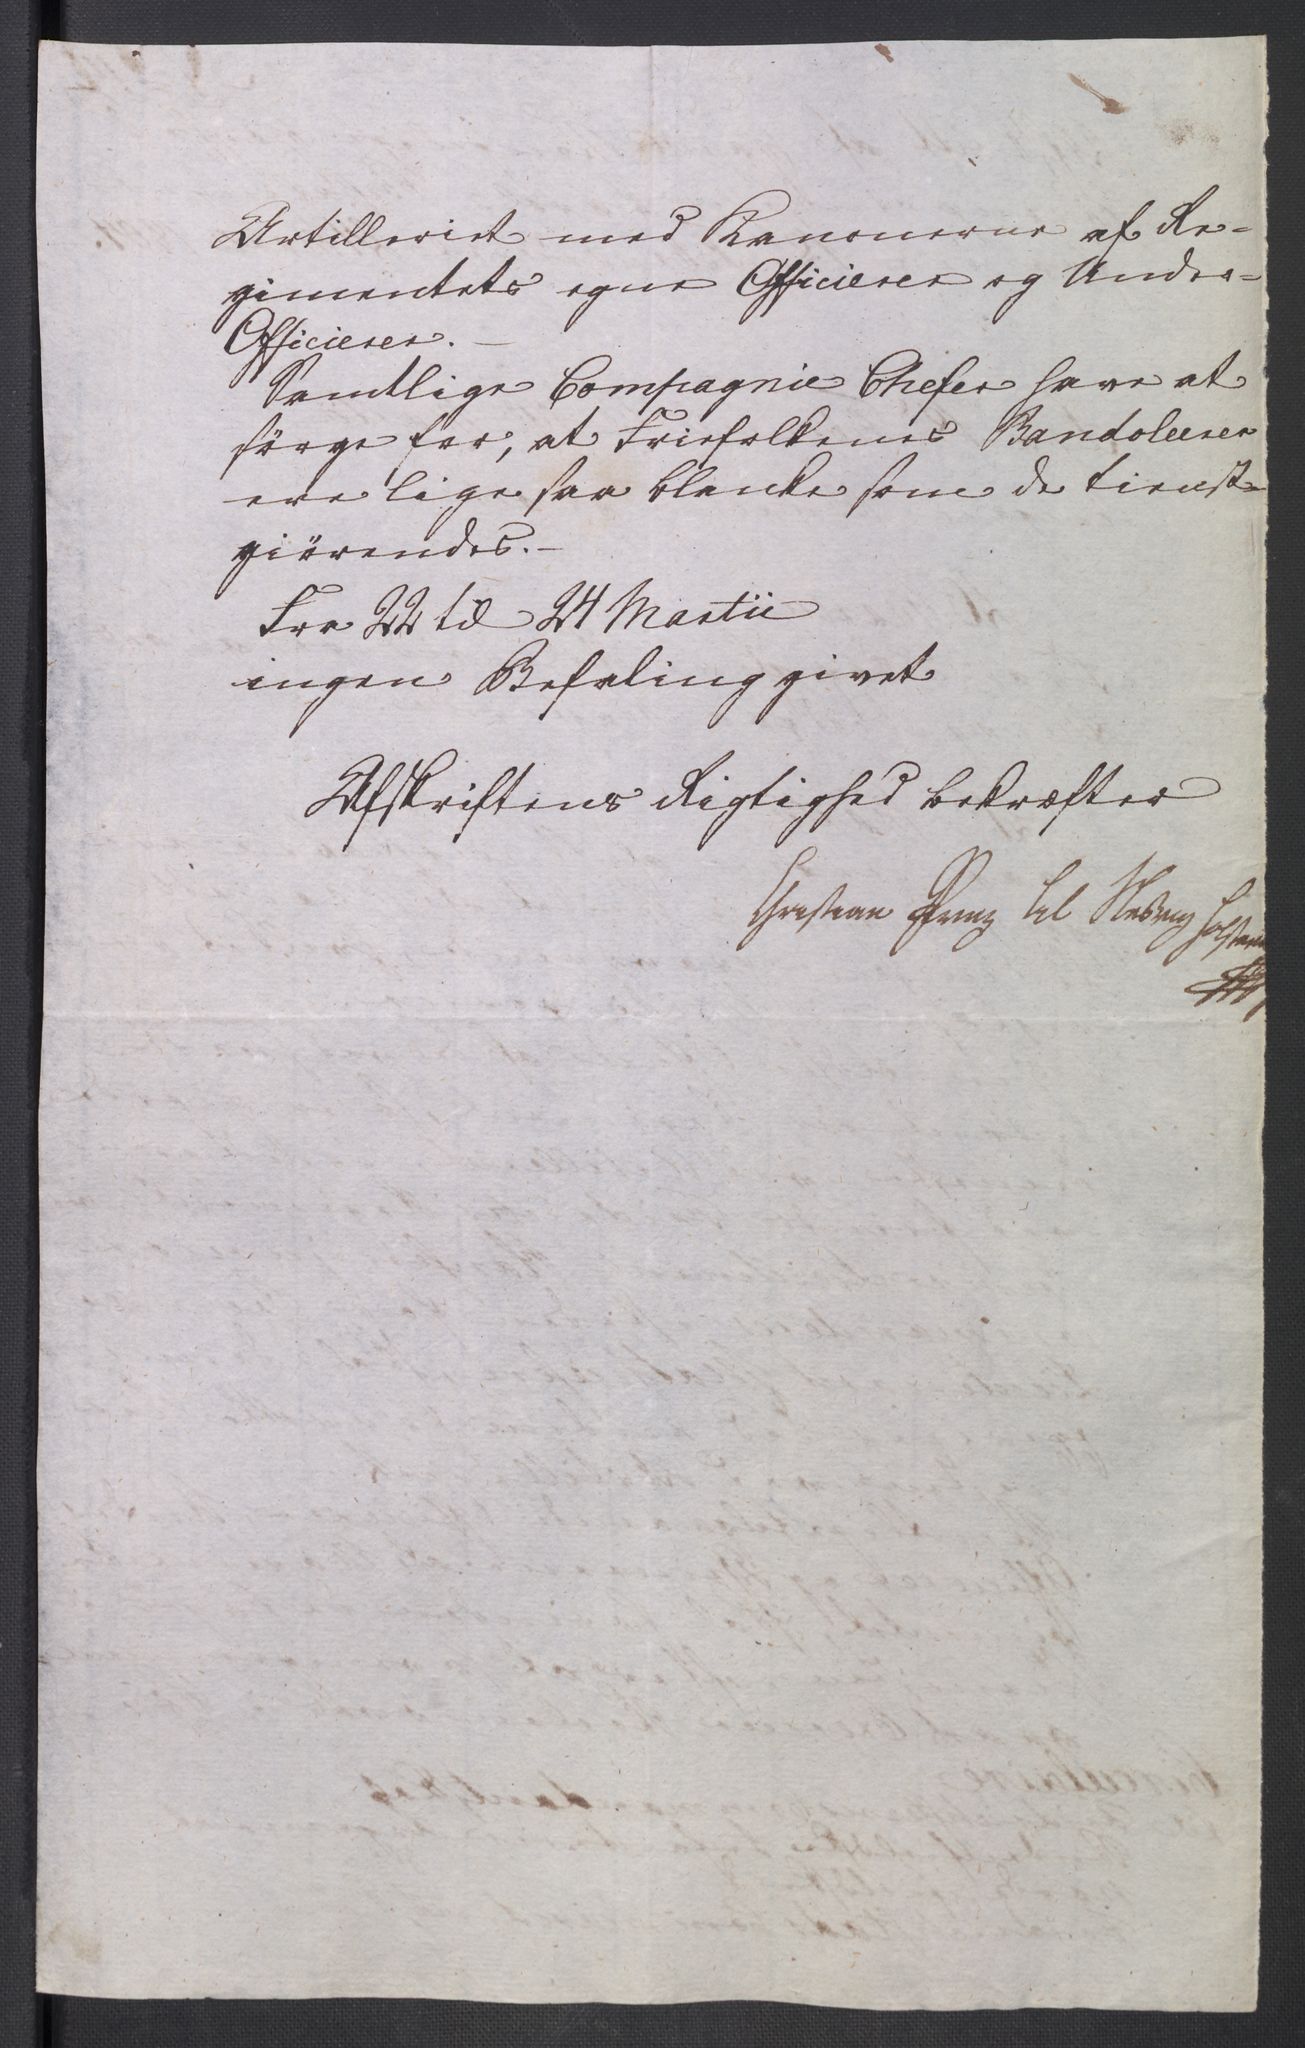 Artilleriet med Kanonerne af Re-
gimentets egne Officierer og Under-
Officierer. —
Samtlige Compagnie Chefer have at
sörge for, at Friefolkenes Bandoleerer
ere lige saa blanke som de tienst-
giörendes. —
Fra 22 til 24 Martii
ingen Befaling givet
Afskriftens Rigtighed bekræfter
Christian Prinz til Slesvig Holsten